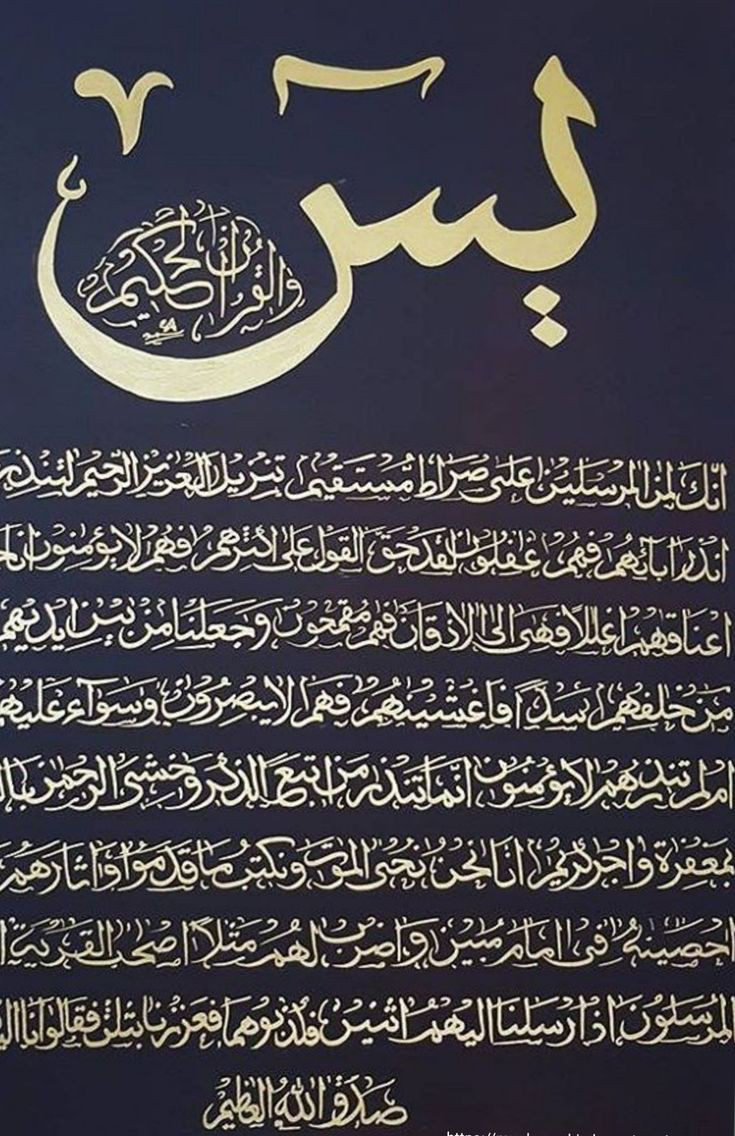 يسٓ
والقرآن الحكيم
انّك لمن المرسلين على صراط مّستقيم تنزيل العزيز الرّحيم لتنذر
انذر اباؤهم فهم غفلون لقد حق القول على اكثرهم فهم لا يؤمنون
اعناقهم اغللاً فهى الى الاذقان فهم مقمحون وجعلنا من بين ايديهم
من خلفهم سدّاً فاغشينهم فهم لا يبصرون وسوآء عليهم
ام لم تنذرهم لا يؤمنون انّما تنذر من اتبع الذكر وخشى الرحمن
بمغفرة واجر كريم انا نحن نحى الموتى ونكتب ما قدموا واثارهم
احصينه فى امام مبين واضرب لهم مثلاً اصحب القرية
المرسلون اذ ارسلنا اليهم اثنين فكذبوهما فعززنا بثالث فقالوا انا
صدق الله العظيم